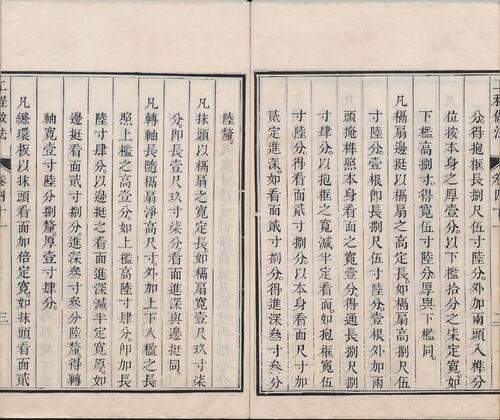 工程做法 卷四十一
分得抱框長捌尺伍寸陸分外加兩頭入榫分
位按本身之厚壹分以下檻拾分之柒定寬如
下檻高捌寸得寬伍寸陸分厚與下檻同。
凡槅扇邊挺以槅扇之高定長如槅扇高捌尺伍
寸陸分壹根即長捌尺伍寸陸分壹根外加兩
頭掩榫照本身看面之寬壹分得通長捌尺捌
寸肆分以抱框之寬減半定看面如抱框寬伍
寸陸分得看面貳寸捌分以本身看面尺寸加
貳定進深。如看面貳寸捌分得進深叁寸叁分
陸釐。
凡抹頭以槅扇之寬定長如槅扇寬壹尺玖寸柒
分即長壹尺玖寸柒分看面進深與邊挺同。
凡轉軸長隨槅扇淨高尺寸外加上下入檻之長
照上檻之高壹分如上檻高陸寸肆分即加長
陸寸肆分以邊挺之看面進深減半定寬厚。如
邊挺看面貳寸捌分進深叁寸叁分陸釐得轉
軸寬壹寸陸分捌釐厚壹寸肆分。
凡縧環板以抹頭看面加倍定寬如抹頭看面貳
工程做法 卷四十一 三